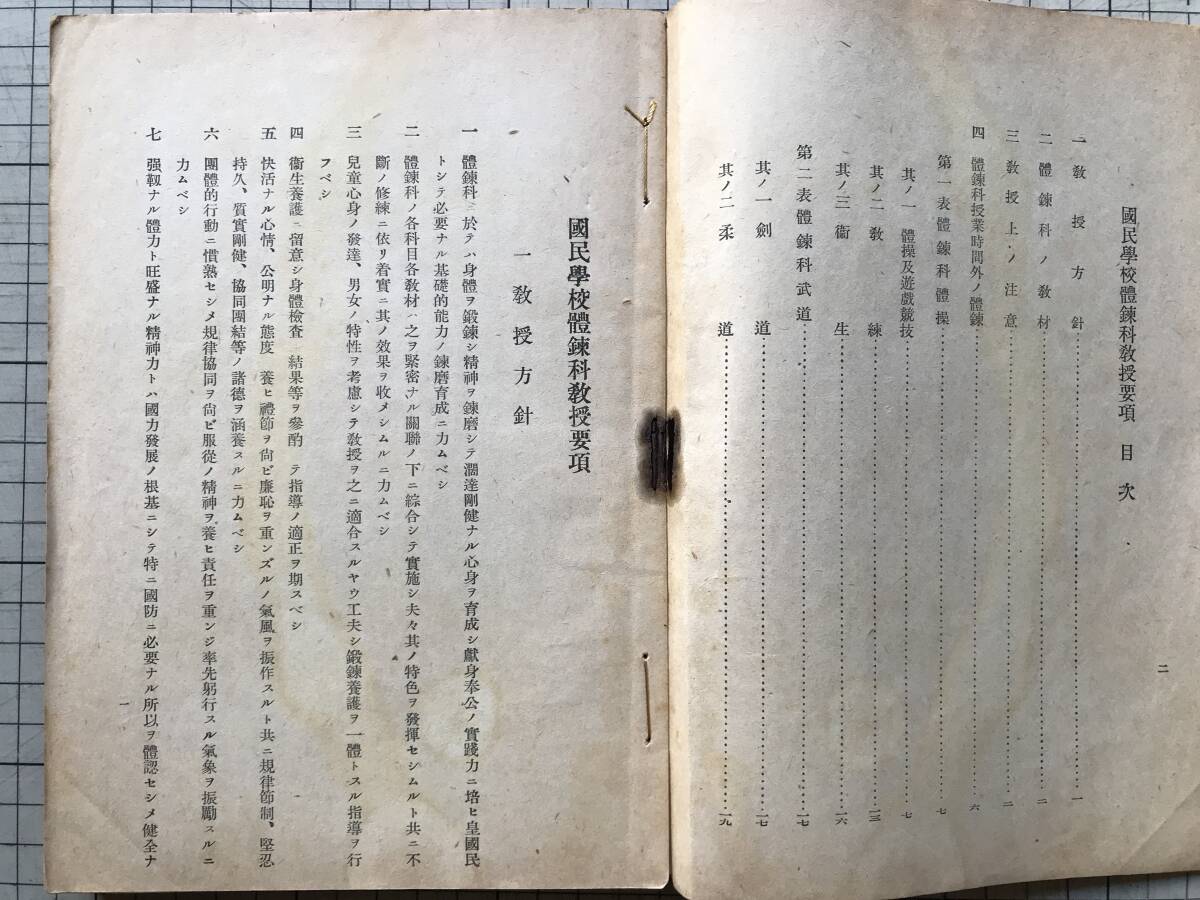 國民學校體鍊科教授要項 目次
一 教授方針……一
二 體鍊科ノ教材……二
三 教授上ノ注意……二
四 體鍊科授業時間外ノ體鍊……六
第一表體鍊科體操……七
其ノ一 體操及遊戲競技……七
其ノ二 教練……一三
其ノ三 衞生……一六
第二表體鍊科武道……一七
其ノ一 劍道……一七
其ノ二 柔道……一九
二
國民學校體鍊科教授要項
一 教授方針
一 體鍊科ニ於テハ身體ヲ鍛鍊シ精神ヲ鍊磨シテ濶達剛健ナル心身ヲ育成シ獻身奉公ノ實踐力ニ培ヒ皇國民
トシテ必要ナル基礎的能力ノ鍊磨育成ニ力ムベシ
二 體鍊科ノ各科目各教材ハ之ヲ緊密ナル關聯ノ下ニ綜合シテ實施シ夫々其ノ特色ヲ發揮セシムルト共ニ不
斷ノ修練ニ依リ着實ニ其ノ效果ヲ收メシムルニ力ムベシ
三 兒童心身ノ發達、男女ノ特性ヲ考慮シテ教授ヲ之ニ適合スルヤウ工夫シ鍛鍊養護ヲ一體トスル指導ヲ行
フベシ
四 衞生養護ニ留意シ身體檢査 結果等ヲ參酌 テ指導ノ適正ヲ期スベシ
五 快活ナル心情、公明ナル態度 養ヒ禮節ヲ尙ビ廉恥ヲ重ンズルノ氣風ヲ振作スルト共ニ規律節制、堅忍
持久、質實剛健、協同團結等ノ諸德ヲ涵養スルニ力ムベシ
六 團體的行動ニ慣熟セシメ規律協同ヲ尙ビ服從ノ精神ヲ養ヒ責任ヲ重ンジ率先躬行スル氣象ヲ振勵スルニ
力ムベシ
七 强靱ナル體力ト旺盛ナル精神力トハ國力發展ノ根基ニシテ特ニ國防ニ必要ナル所以ヲ體認セシメ健全ナ
一